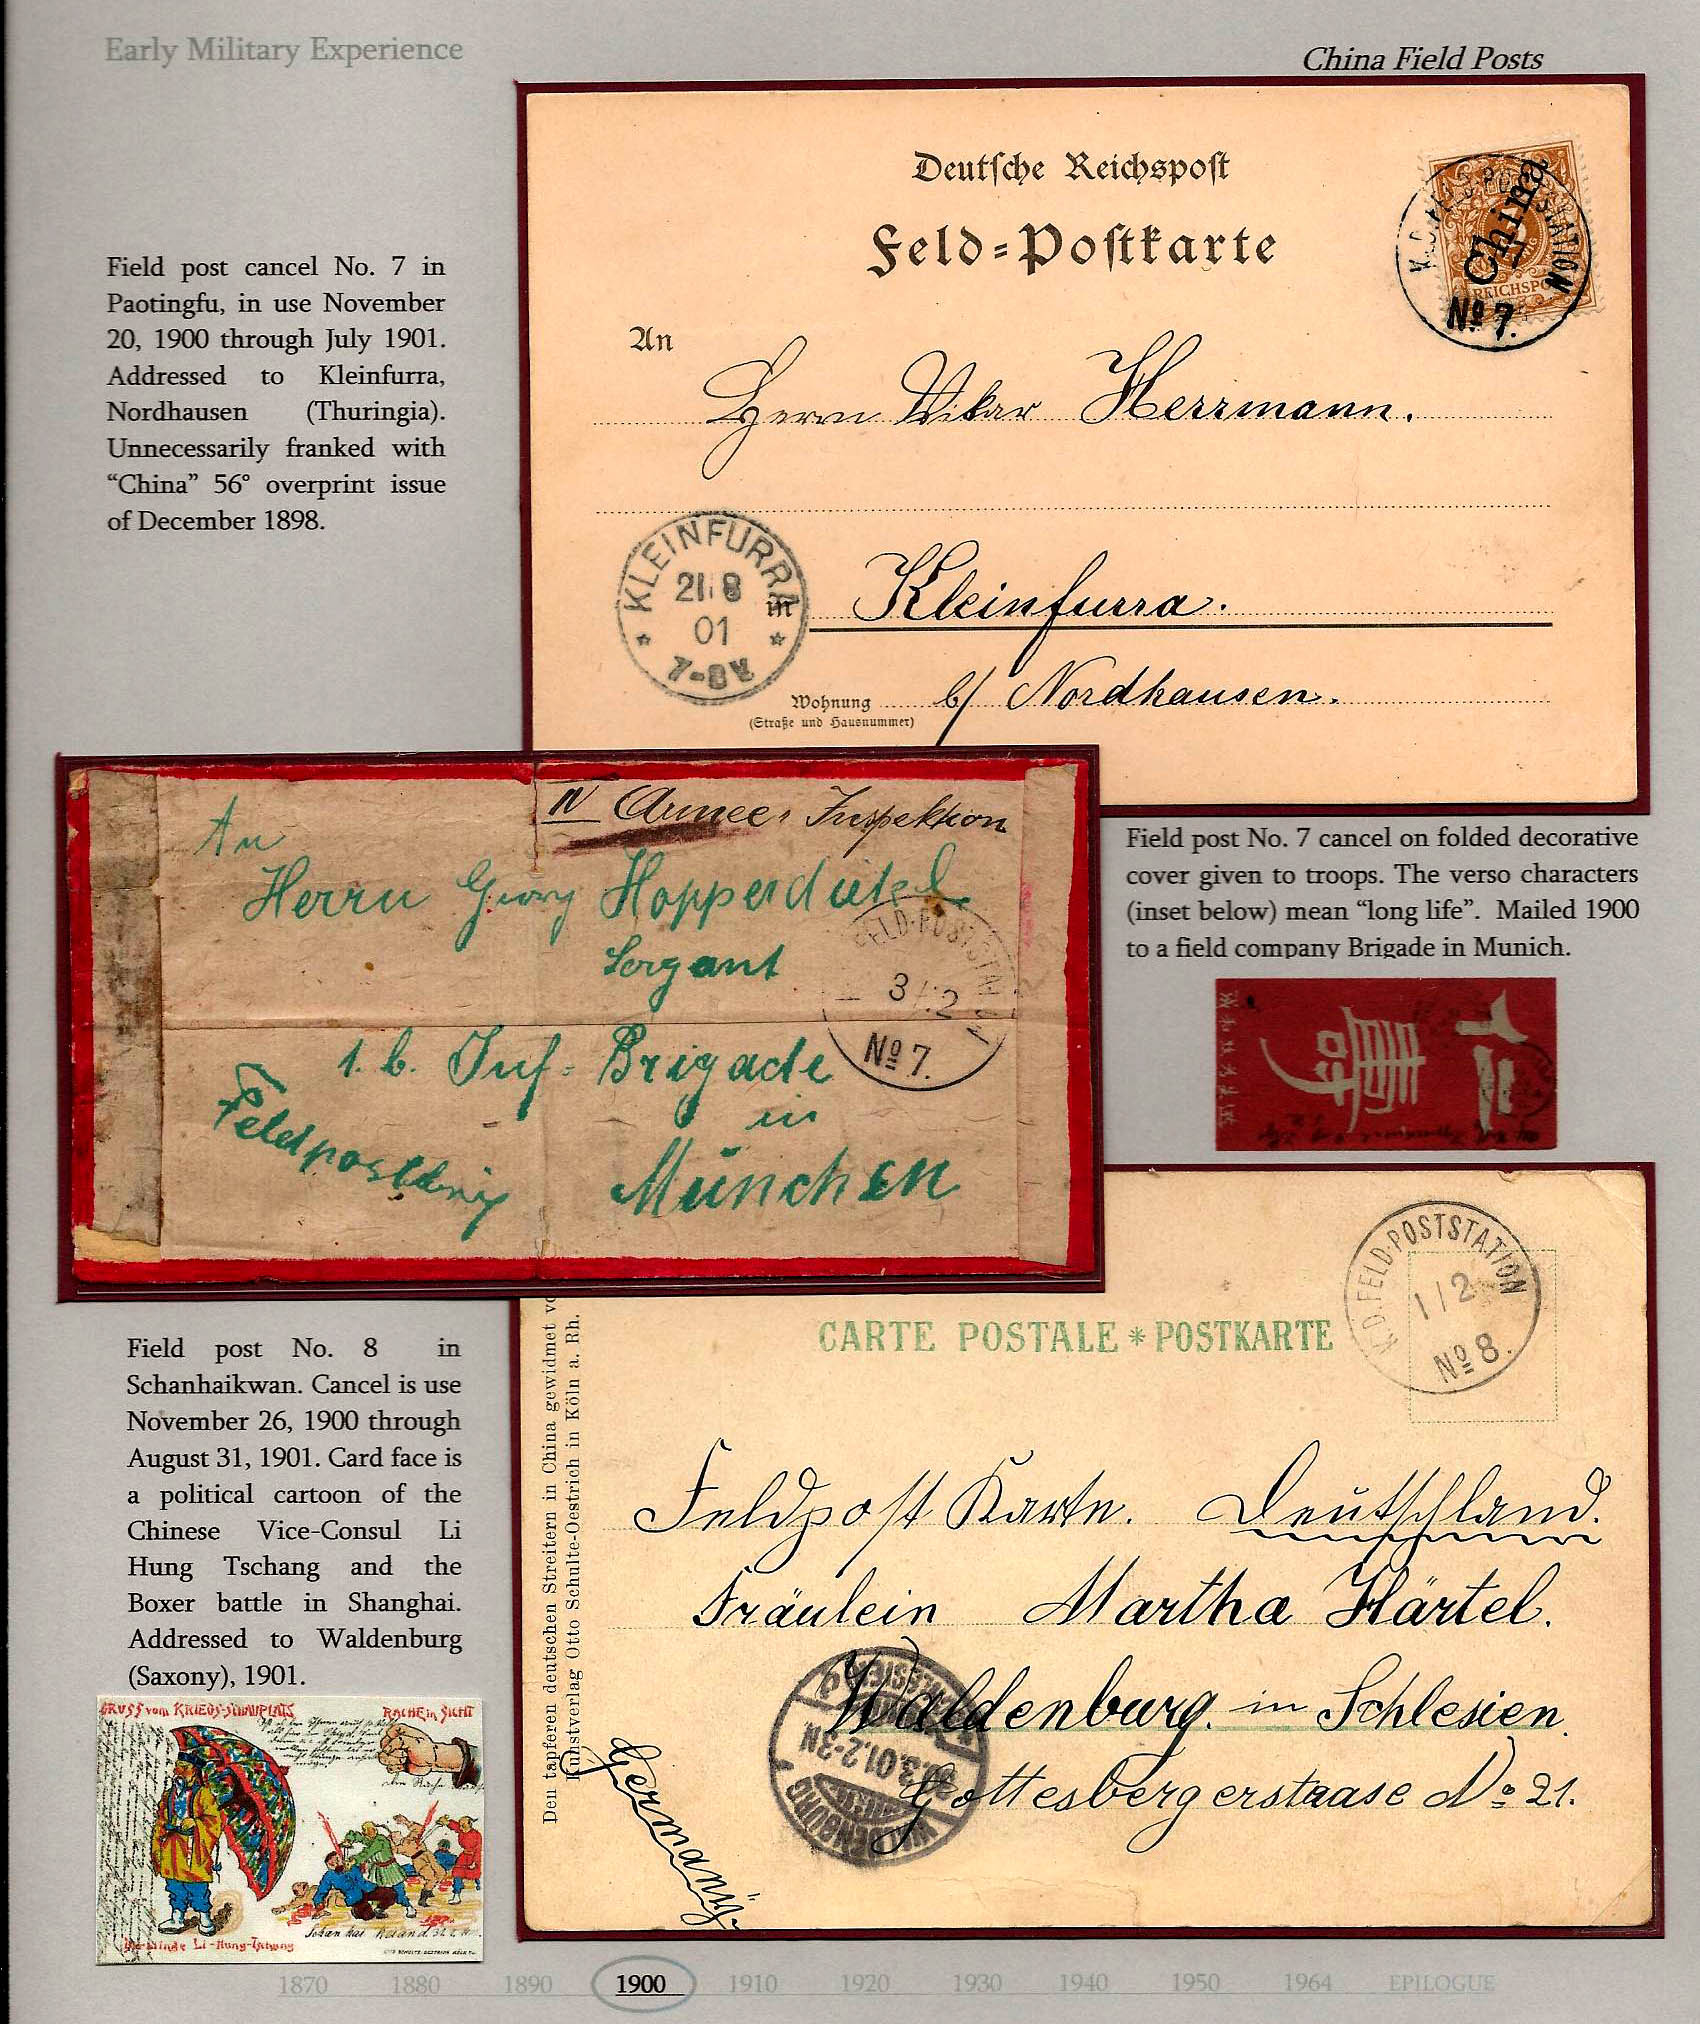 Early Military Experience
China Field Posts
Field post cancel No. 7 in
Paotingfu, in use November
20, 1900 through July 1901.
Addressed to Kleinfurra,
Nordhausen (Thuringia).
Unnecessarily franked with
“China” 56° overprint issue
of December 1898.
Deutsche Reichspost
Feld-Postkarte
China
REICHSPO
STATION
No 7.
An
Herrn Vikar Herrmann.
KLEINFURRA
21 8
01
in
Kleinfurra.
Wohnung
(Straße und Hausnummer)
b/ Nordhausen.
IV Armee-Inspektion
An
Herrn Georg
Sergant
FELD-POSTSTA
No 7.
1. b. Inf-Brigade
in
München
Field post No. 7 cancel on folded decorative
cover given to troops. The verso characters
(inset below) mean “long life”. Mailed 1900
to a field company Brigade in Munich.
Field post No. 8 in
Schanhaikwan. Cancel is use
November 26, 1900 through
August 31, 1901. Card face is
a political cartoon of the
Chinese Vice-Consul Li
Hung Tschang and the
Boxer battle in Shanghai.
Addressed to Waldenburg
(Saxony), 1901.
GRUSS vom KRIEGS-SCHAUPLATS
RACHE in SICHT
Li-Hung-Tschang
Den tapferen deutschen Streitern in China gewidmet vo
Kunstverlag Otto Schulte-Oestrich in Köln a. Rh.
CARTE POSTALE * POSTKARTE
K.D.FELD-POSTSTATION
1/2
No 8.
Feldpost Karte. Deutschland.
Fräulein Martha Härtel.
Waldenburg. in Schlesien.
Gottesbergerstraase No 21.
Germania
WALDENBURG
3.01.2-3N
1870 1880 1890 1900 1910 1920 1930 1940 1950 1964 EPILOGUE